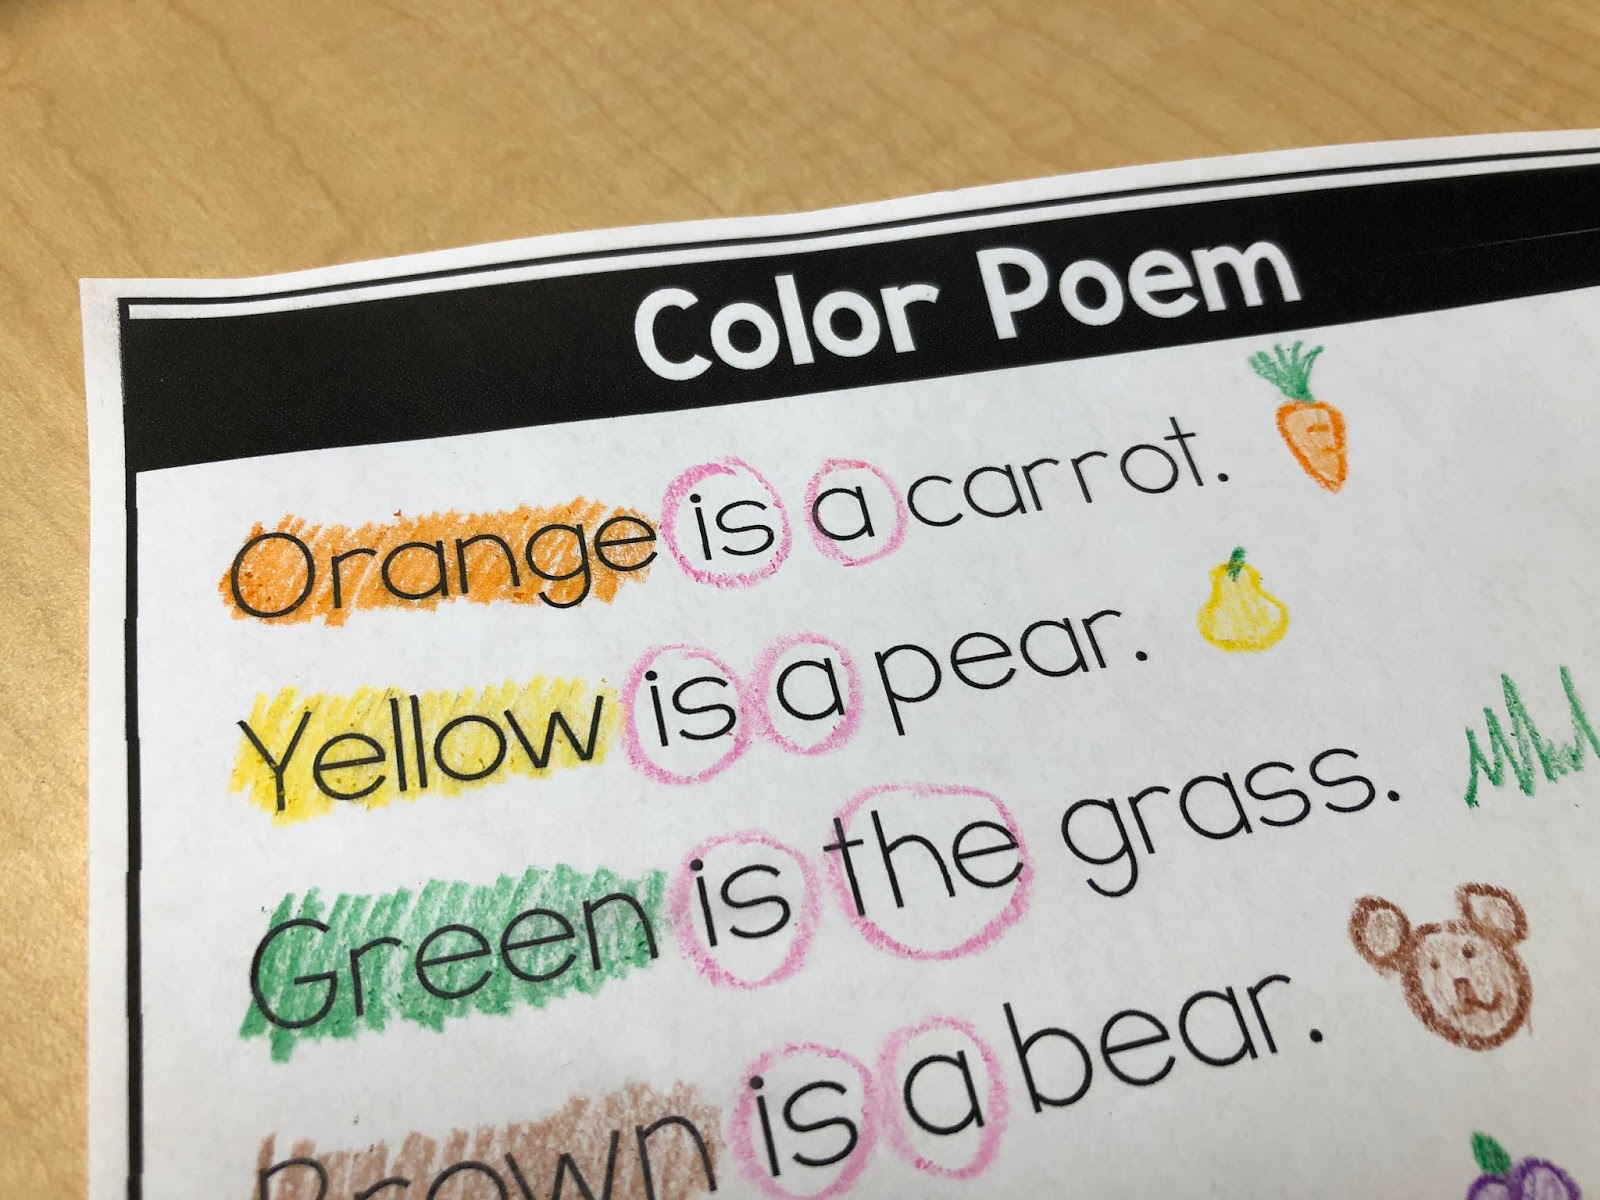 Color Poem
Orange is a carrot.
Yellow is a pear.
Green is the grass.
Brown is a bear.